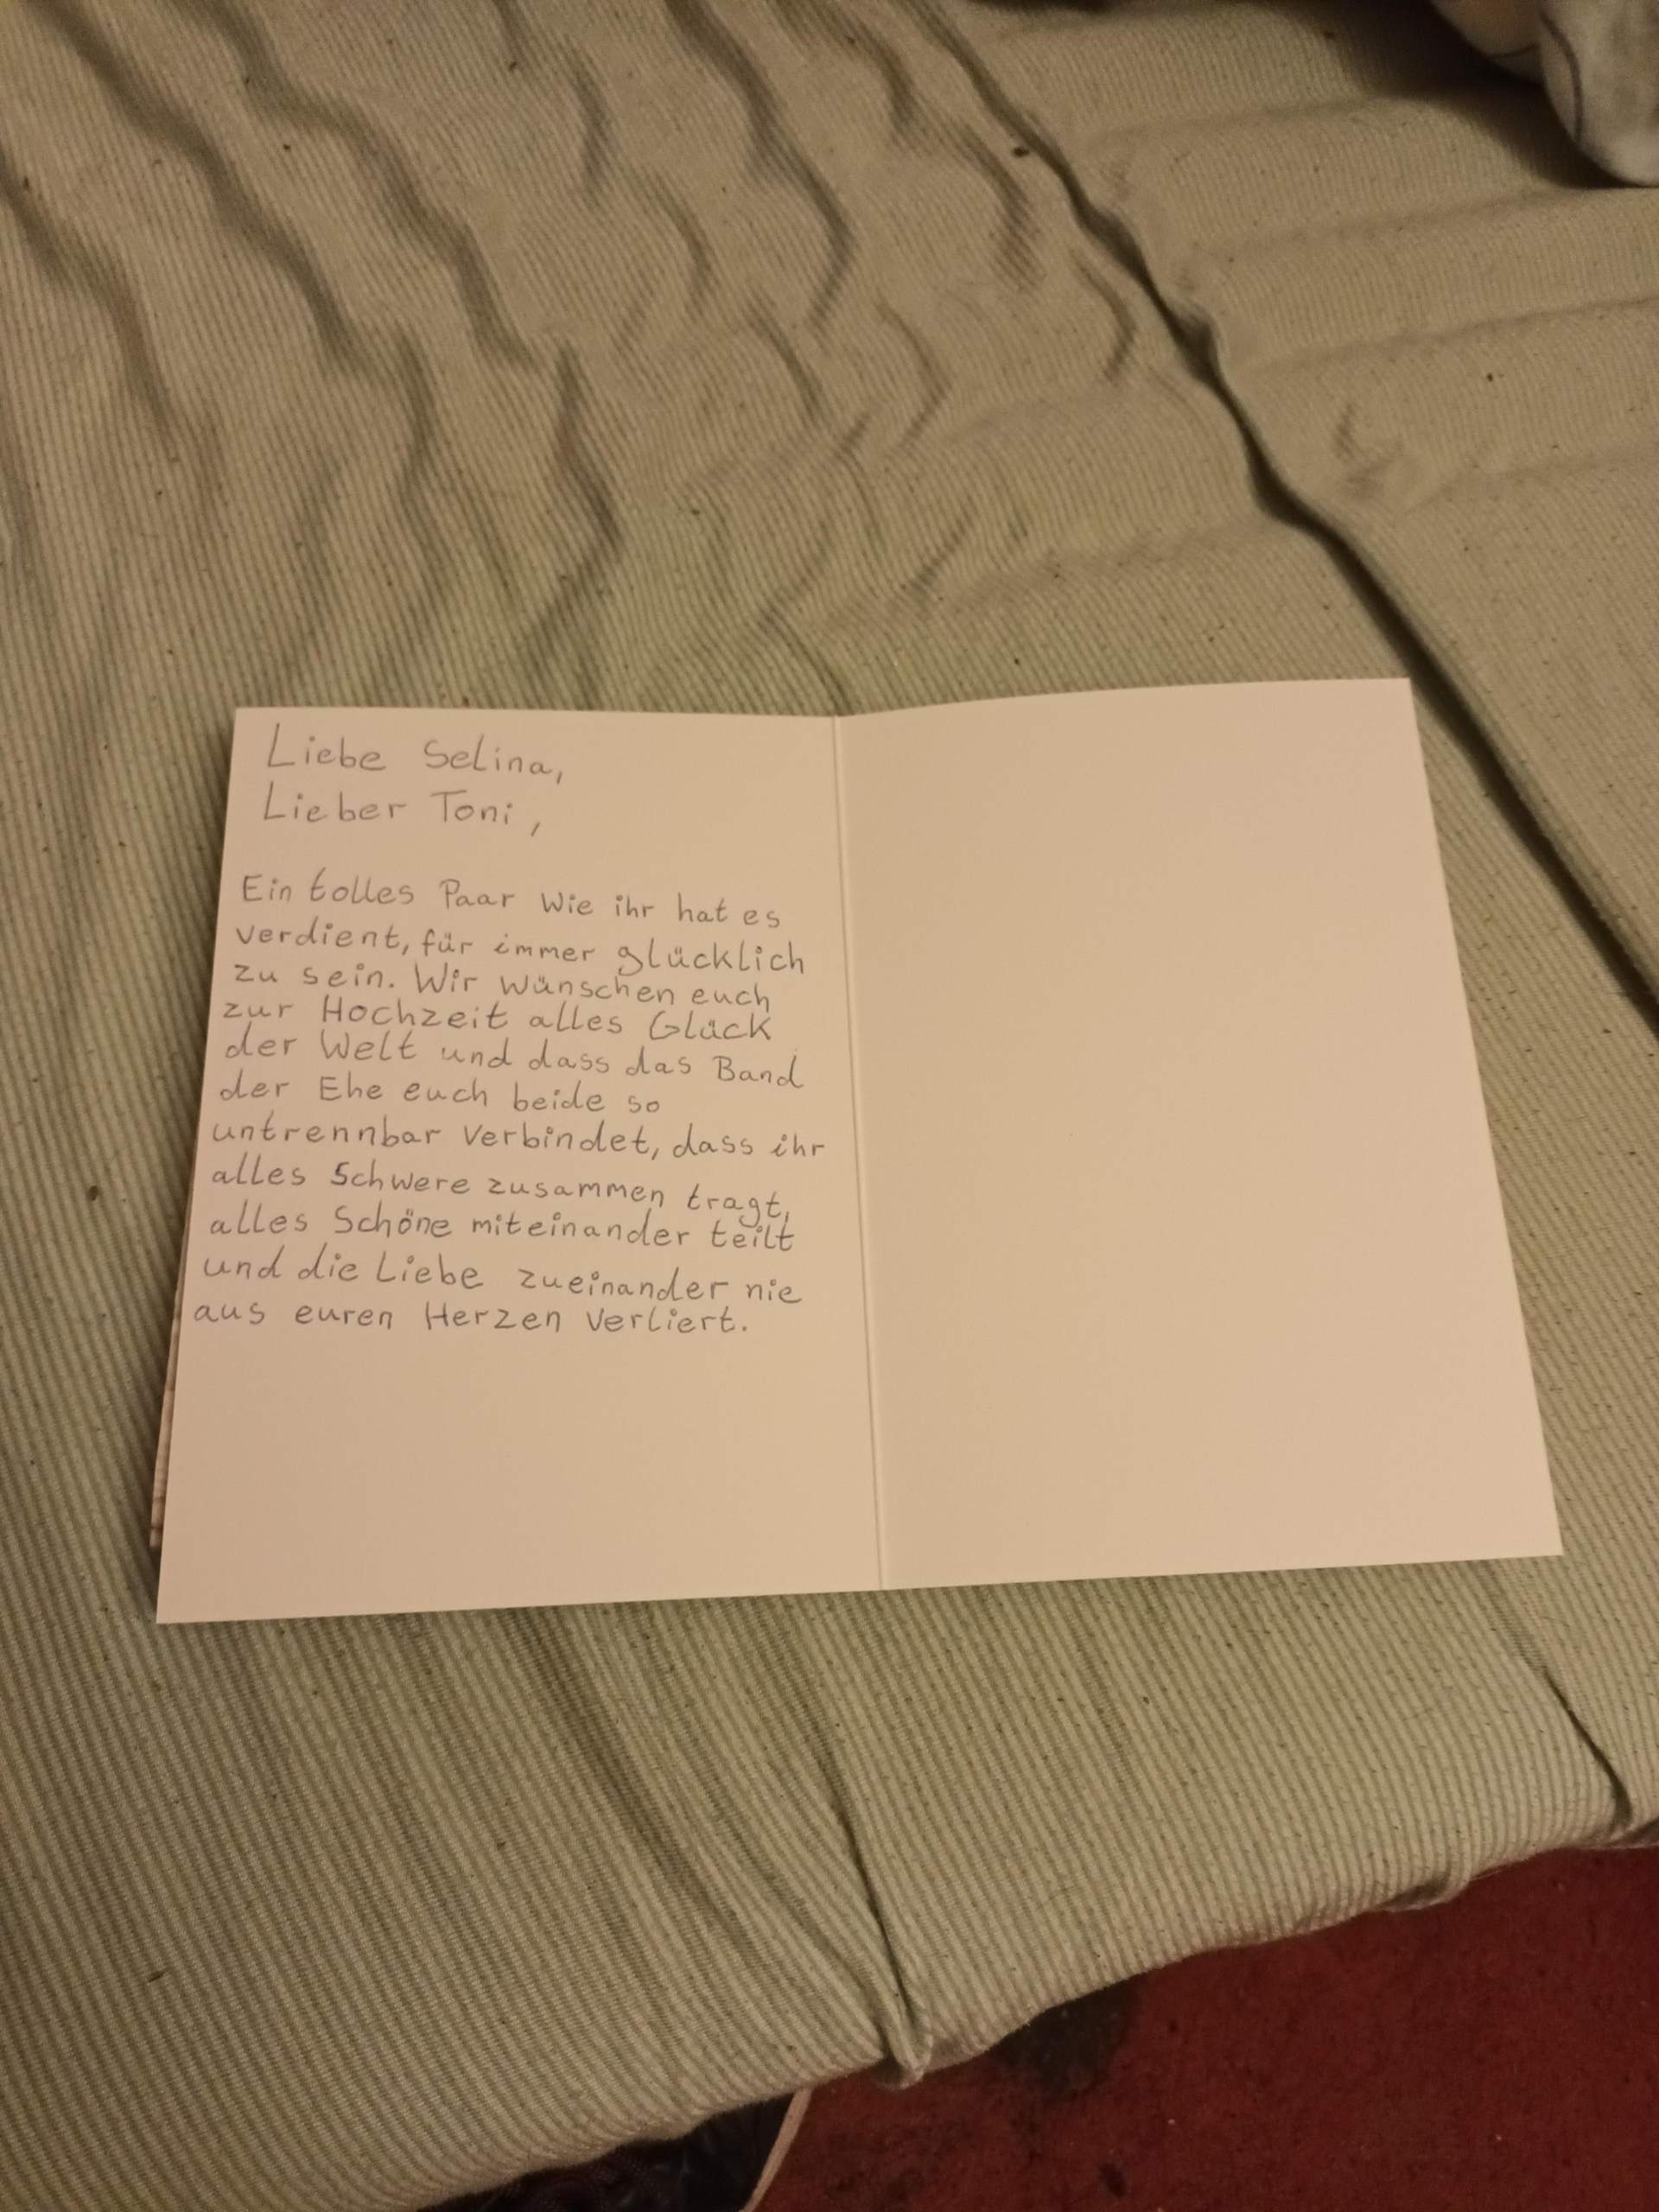 Liebe Selina,
Lieber Toni,
Ein tolles Paar wie ihr hat es
verdient, für immer glücklich
zu sein. Wir wünschen euch
zur Hochzeit alles Glück
der Welt und dass das Band
der Ehe euch beide so
untrennbar verbindet, dass ihr
alles Schwere zusammen tragt,
alles Schöne miteinander teilt
und die Liebe zueinander nie
aus euren Herzen verliert.